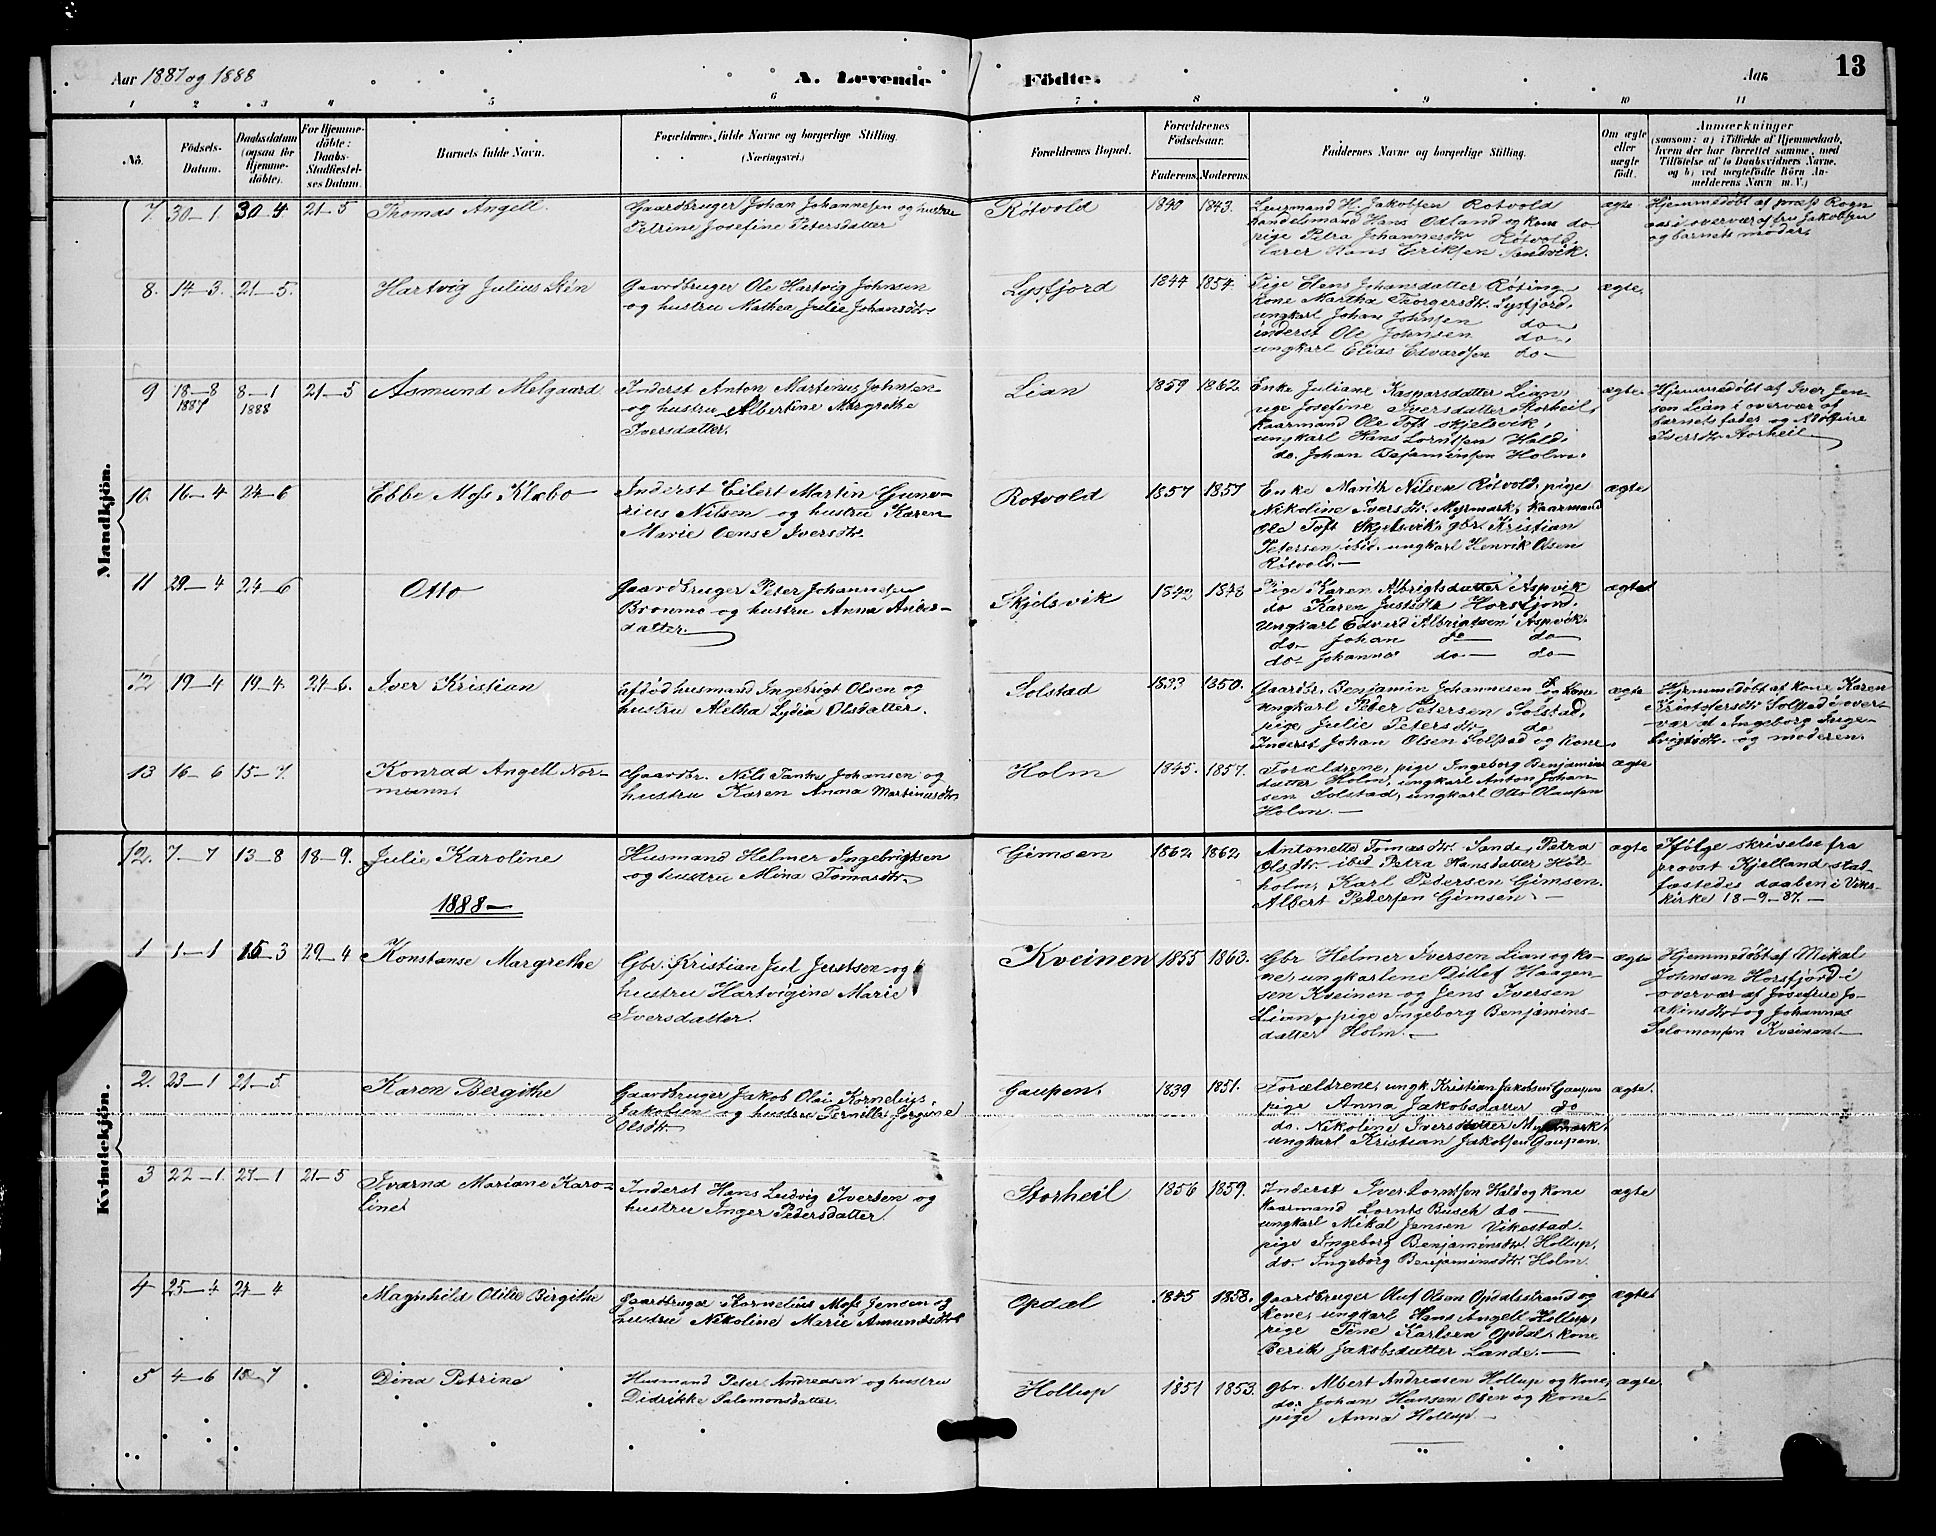 Aar 1887 og 1888
A. Levende Födte.
Aar
13
1 2 3 4 5 6 7 8 9 10 11
No.
Födsels-
Datum.
Daabsdatum
(ogsaa for
Hjemme-
döbte).
For Hjemme-
döbte:
Daabs-
Stadfæstel-
ses Datum.
Barnets fulde Navn.
Forældrenes fulde Navne og borgerlige Stilling.
(Næringsvei.)
Forældrenes Bopæl.
Forældrenes
Födselsaar.
Faderens. Moderens.
Faddernes Navne og borgerlige Stilling.
Om ægte
eller
uægte
født.
Anmærkninger
(saasom: a) i Tilfælde af Hjemmedaab,
hvem der har forrettet samme, med
Tilföielse af to Daabsvidners Navne.
og b) ved uægtefödte Börn An-
melderens Navn m. V.)
Mandkjön.
7 30-1 30-4 21-5 Thomas Angell.
Gaardbruger Johan Johannesen og hustru
Petrine Josefine Petersdatter
Rötvold 1840 1843.
Lensmand H. Jakobsen Rotvold
handelsmand Hans Odland og kone do
pige Petra Johannesdtr Rötvold,
lærer Hans Eriksen Sandvik.
ægte
Hjemmedöbt af præst Rogn
aas i overvær af fru Jakobsen
og barnets moder.
8. 14-3. 21-5. Hartvig Julius Stén
Gaardbruger Ole Hartvig Johnsen
og hustru Mathea Julie Johansdtr.
Lysfjord 1844 1854.
Pige Elens Johansdatter Röting
kone Martha Thorgersdtr. Lysfjord,
ungkarl Johan Johnsen do
inderst Ole Johnsen do
ungkarl Elias Edvardsen do
ægte.
9 18-8 1887 8-1 1888 21-5 Asmund Melgaard
Inderst Anton Martinus Johnsen
og hustru Albertine Margrethe
Iversdatter.
Lian 1859 1862.
Enke Juliane Kasparsdatter Lian
pige Josefine Iversdatter Storheil,
kaarmand Ole Toft Skjelsvik,
ungkarl Hans Lorntsen Hald,
do. Johan Benjaminsen Holm.
ægte.
Hjemmedöbt af Iver Jen-
sen Lian i overvær af
barnets fader og Adolfine
Iversdtr Storheil
10. 16-4 24-6 Ebbe Moss Klæbo
Inderst Eilert Martin Gune-
rius Nilsen og hustru Karen
Marie Oense Iversdtr.
Rotvold 1857 1857
Enke Marith Nilsen Rötvold, pige
Nikoline Iversdtr. Myrmark, kaarmand
Ole Toft Skjelsvik, gbr. Kristian
Petersen ibid. ungkarl Henrik Olsen
Rötvold.
ægte
11 29-4 24-6 Otto
Gaardbruger Peter Johannesen
Brouma og hustru Anna Anders-
datter.
Skjelsvik 1842 1848
Pige Karen Albrigtsdatter Aspvik
do Karen Justsdtr Horsfjord.
Ungkarl Edvard Albrigtsen Aspvik
do Johan do do
do Johannes do do
ægte
12 19-4 19-4. 24-6. Iver Kristian
afdöd husmand Ingebrigt Olsen og
hustru Aletha Lydia Olsdatter.
Solstad 1833 1850.
Gaardbr. Benjamin Johannesen og kone
ungkarl Peder Petersen Solstad,
pige Julie Petersdtr do
Inderst Johan Olsen Solstad og kone.
ægte
Hjemmedöbt af kone Karen
Kristofersdtr Solstad i over-
vær af Ingeborg Inge-
brigtsdtr. og moderen.
13 16-6 15-7. Konrad Angell Nor-
mann.
Gaardbr. Nils Tanke Johansen og
hustru Karen Anna Martinusdtr.
Holm 1845. 1857.
Forældrene, pige Ingeborg Benjamins
datter Holm, ungkarl Anton Johan
sen Solstad, ungkarl Otto Olausen
Holm.
ægte
Kvindekjön.
12. 7-7 13-8 18-9. Julie Karoline
Husmand Helmer Ingebrigtsen
og hustru Mina Tomasdtr.
Gimsen 1862 1862
Antonette Tomasdtr. Sande, Petra
Olsdtr. ibid Petra Hansdatter Hol
holm, Karl Pedersen Gimsen.
Albert Pedersen Gimsen.
ægte
Ifölge skrivelse fra
provst Kjelland stad-
fæstedes daaben i Viks
kirke 18-9-87.
1888
1 1-1 15-3 29-4 Konstanse Margrethe
Gbr. Kristian Jul Jerstsen og
hustru Hartvigine Marie
Iversdatter.
Kveinen 1855 1863.
Gbr Helmer Iversen Lian og ko-
ne, ungkarlene Ditlef Haagen-
sen Kveinen og Jens Iversen
Lian, pige Ingeborg Benjamins-
datter Holm.
ægte
Hjemmedöbt af Mikal
Johnsen Horsfjord i
overvær af Josefine Jo-
akimsdtr og Johannes
Salomonsen Kveinen
2. 23-1 21-5. Karen Bergithe
Gaardbruger Jakob Olai Kornelius
Jakobsen og hustru Pernille Jörgine
Olsdtr.
Gaupen. 1839 1851.
Forældrene, ungk Kristian Jakobsen Gaupen
pige Anna Jakobsdatter do
do. Nikoline Iversdatter Myrmark,
ungkarl Kristian Jakobsen Gaupen.
ægte.
3 22-1. 27-1 21-5 Ivarna Mariane Karo-
line
Inderst Hans Ludvig Iversen og
hustru Inger Pedersdatter.
Storheil 1856 1859.
Inderst Iver Lorntsen Hald og kone
kaarmand Lornts Busch do
ungkarl Mikal Jensen Vikestad.
pige Ingeborg Benjaminsdtr. Hollup,
do. Ingeborg Benjaminsdtr. Holm.
ægte
4 25-4 24-4 Magnhild Otilie Birgithe
Gaardbruger Kornelius Moss Jensen og
hustru Nikoline Marie Amundsdtr
Opdal 1845 1858.
Gaardbruger Oluf Olsen Opdalstrand og
kone, ungkarl Hans Angell Hollup,
pige Tene Karlsen Opdal, kone
Berith Jakobsdatter Lande.
ægte
5 4-6 15-7 Dina Petrine
Husmand Peter Andreasen og hustru
Didrikke Salomonsdatter.
Hollup 1851 1853.
Gbr. Albert Andreasen Hollup og kone,
do. Johan Hansen Osen og kone
pige Anna Hollup
ægte.